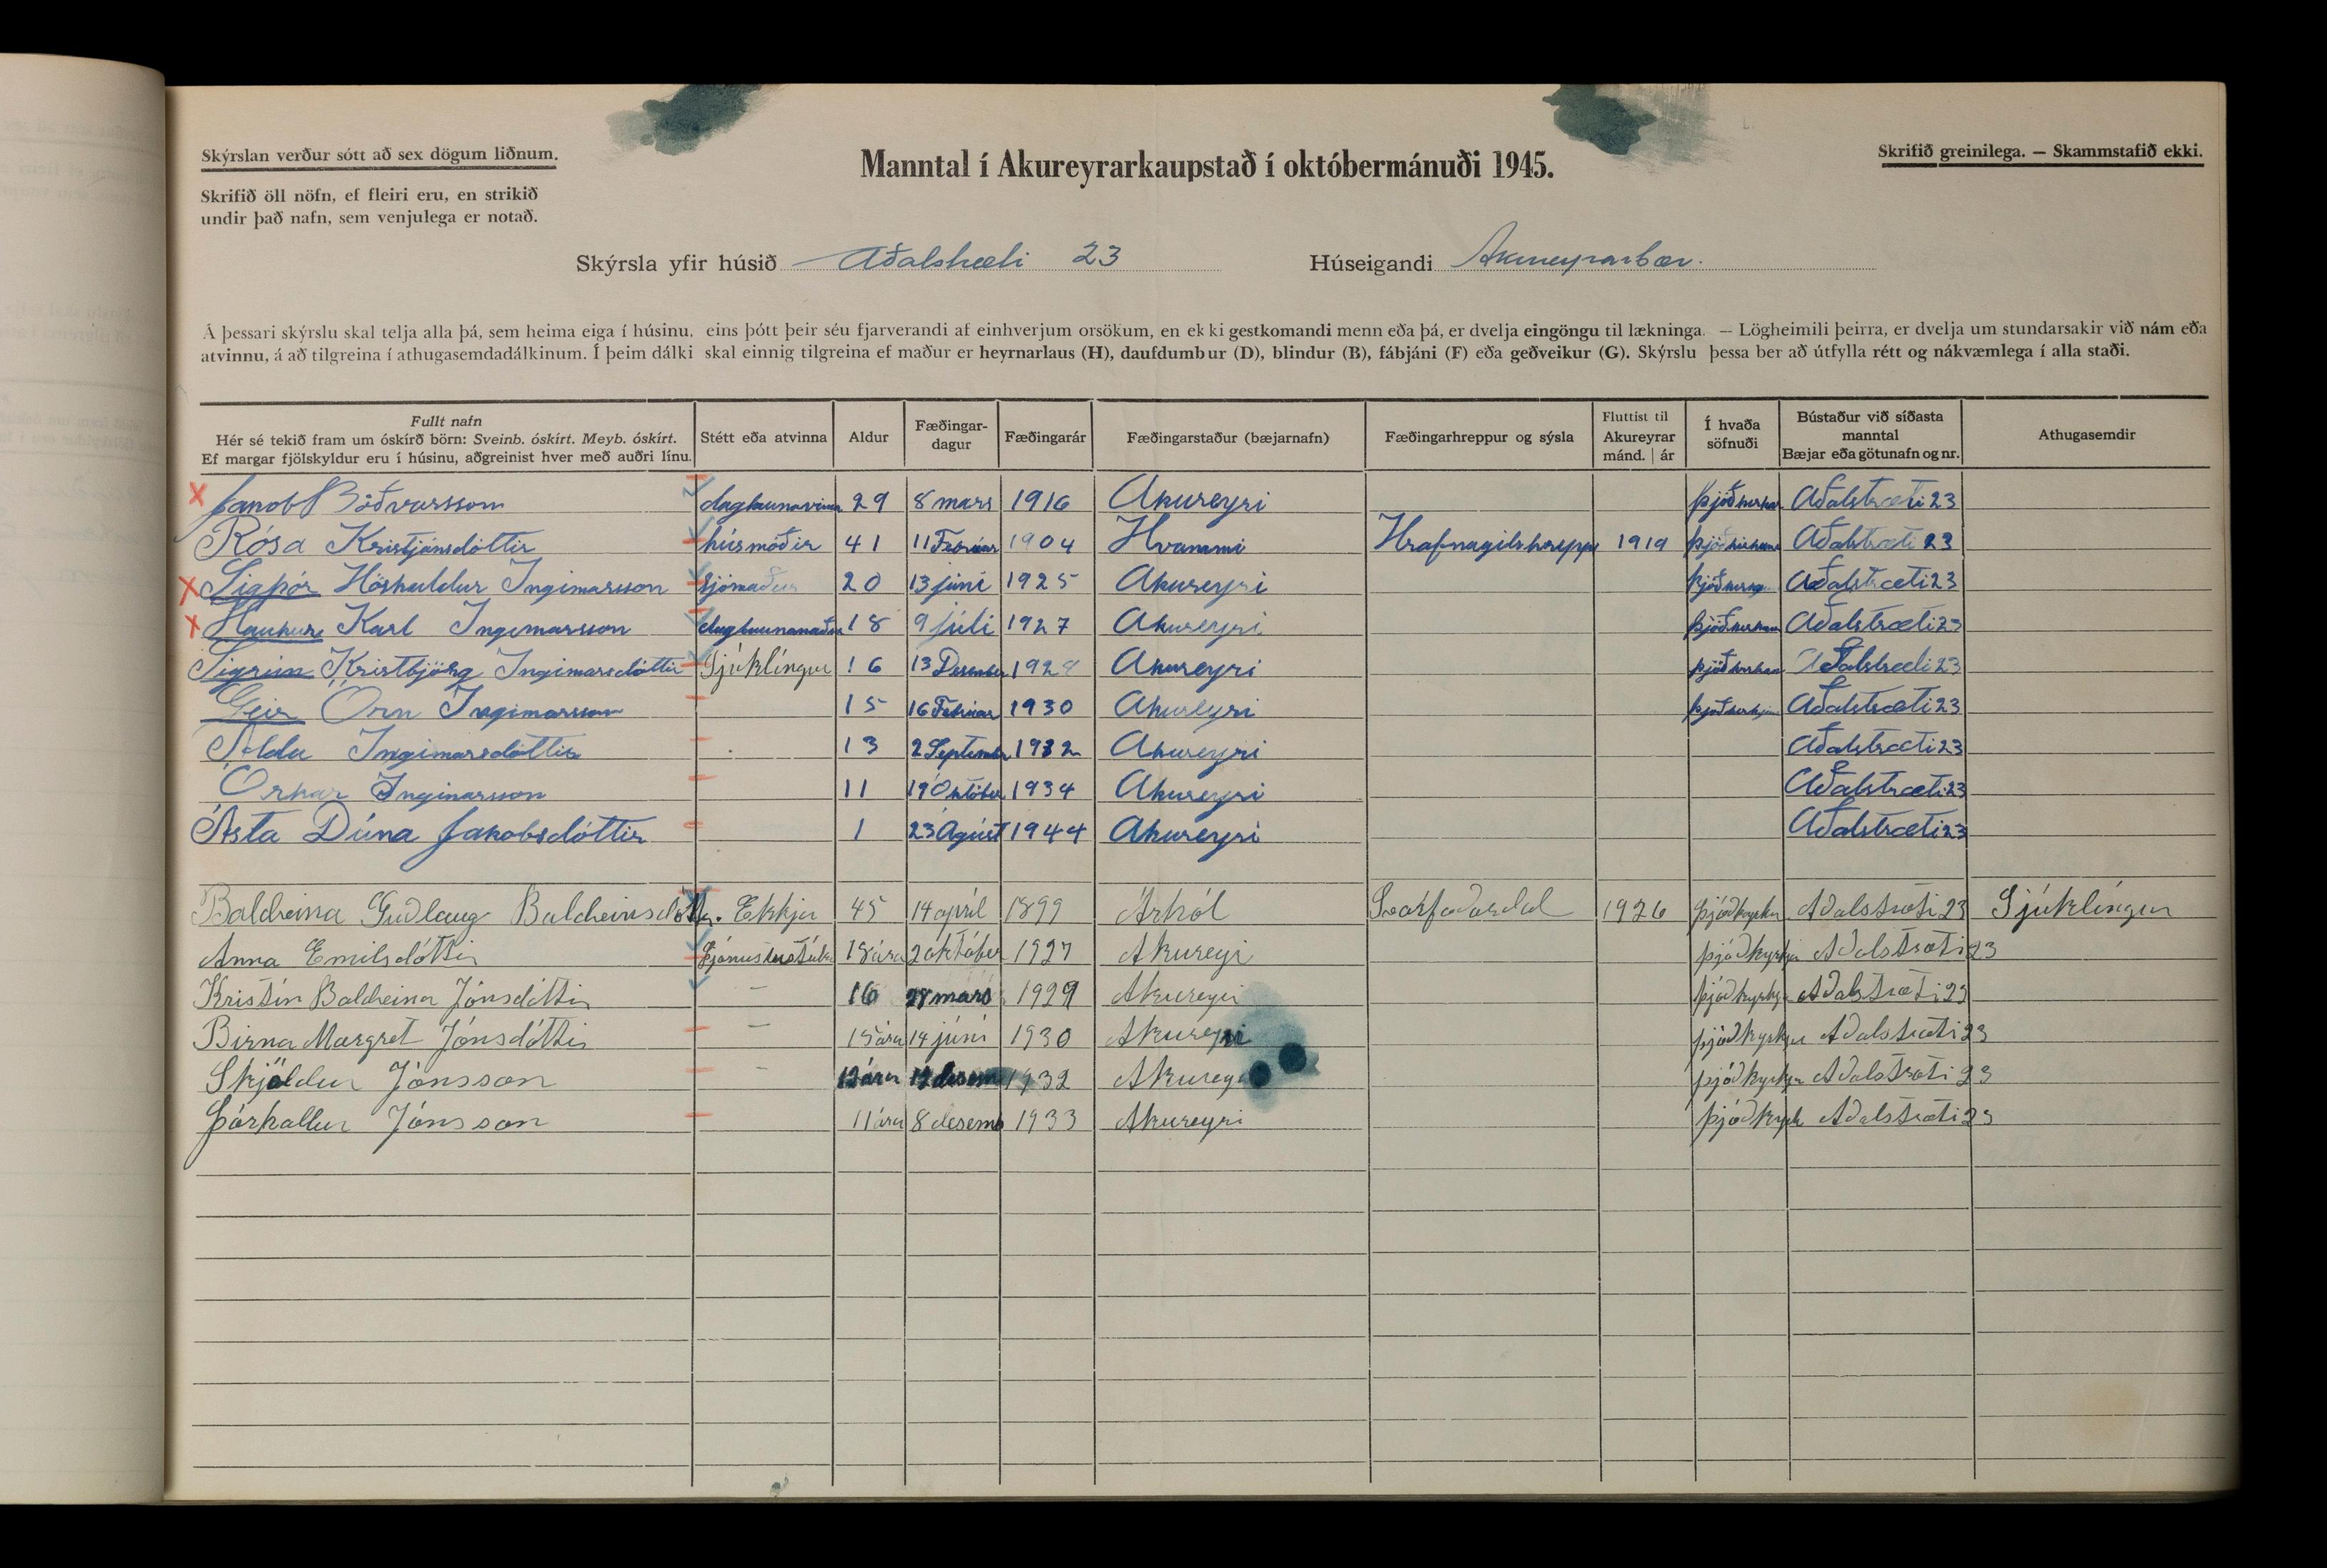 Skýrslan verður sótt að sex dögum liðnum.
Skrifið öll nöfn, ef fleiri eru, en strikið
undir það nafn, sem venjulega er notað.
Manntal í Akureyrarkaupstað í októbermánuði 1945.
Skrifið greinilega. — Skammstafið ekki.
Skýrsla yfir húsið Aðalstræti 23 Húseigandi Akureyrarbær.
Á þessari skýrslu skal telja alla þá, sem heima eiga í húsinu, eins þótt þeir séu fjarverandi af einhverjum orsökum, en ekki gestkomandi menn eða þá, er dvelja eingöngu til lækninga. — Lögheimili þeirra, er dvelja um stundarsakir við nám eða
atvinnu, á að tilgreina í athugasemdadálkinum. Í þeim dálki skal einnig tilgreina ef maður er heyrnarlaus (H), daufdumbur (D), blindur (B), fábjáni (F) eða geðveikur (G). Skýrslu þessa ber að útfylla rétt og nákvæmlega í alla staði.
Fullt nafn
Hér sé tekið fram um óskírð börn: Sveinb. óskírt. Meyb. óskírt.
Ef margar fjölskyldur eru í húsinu, aðgreinist hver með auðri línu.
Stétt eða atvinna
Aldur
Fæðingar-
dagur
Fæðingarár
Fæðingarstaður (bæjarnafn)
Fæðingarhreppur og sýsla
Fluttist til
Akureyrar
mánd. | ár
Í hvaða
söfnuði
Bústaður við síðasta
manntal
Bæjar eða götunafn og nr.
Athugasemdir
Jakob Böðvarsson 29 8 mars 1916 Akureyri Aðalstræti 23
Rósa Kristjánsdóttir húsmóðir 41 11 Febrúar 1904 Hvammi Hrafnagilshreppi 1919 Aðalstræti 23
Sigþór Höskuldur Ingimarsson sjómaður 20 13 júní 1925 Akureyri Aðalstræti 23
Haukur Karl Ingimarsson 18 9 júlí 1927 Akureyri Aðalstræti 23
Sigrún Kristbjörg Ingimarsdóttir Sjúklingur 16 13 Desember 1928 Akureyri Aðalstræti 23
Geir Örn Ingimarsson 15 16 Febrúar 1930 Akureyri Aðalstræti 23
Alda Ingimarsdóttir 13 2 September 1932 Akureyri Aðalstræti 23
Ingimarsson 11 19 Október 1934 Akureyri Aðalstræti 23
Ásta Dúna Jakobsdóttir 1 23 Ágúst 1944 Akureyri Aðalstræti 23
Guðlaug Ekkja 45 14 apríl 1899 Árhól Svarfaðardal 1926 Aðalstræti 23 Sjúklingur
Anna Emilsdóttir 18 ára 2 október 1927 Akureyri þjóðkyrkja Aðalstræti 23
Kristín Jónsdóttir — 16 mars 1929 Akureyri þjóðkyrkja Aðalstræti 23
Birna Margret Jónsdóttir — 15 ára 14 júní 1930 Akureyri þjóðkyrkja Aðalstræti 23
Skjöldur Jónsson - 12 ára 1932 þjóðkyrkja Aðalstræti 23
Þórhallur Jónsson 11 ára 8 desemb 1933 Akureyri Aðalstræti 23